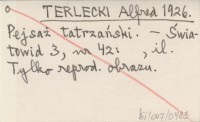 o TERLECKI Alfred 1926.
Pejsaż tatrzański. — Świa-
towid 3, nr 42: , il.
Tylko reprod. obrazu.